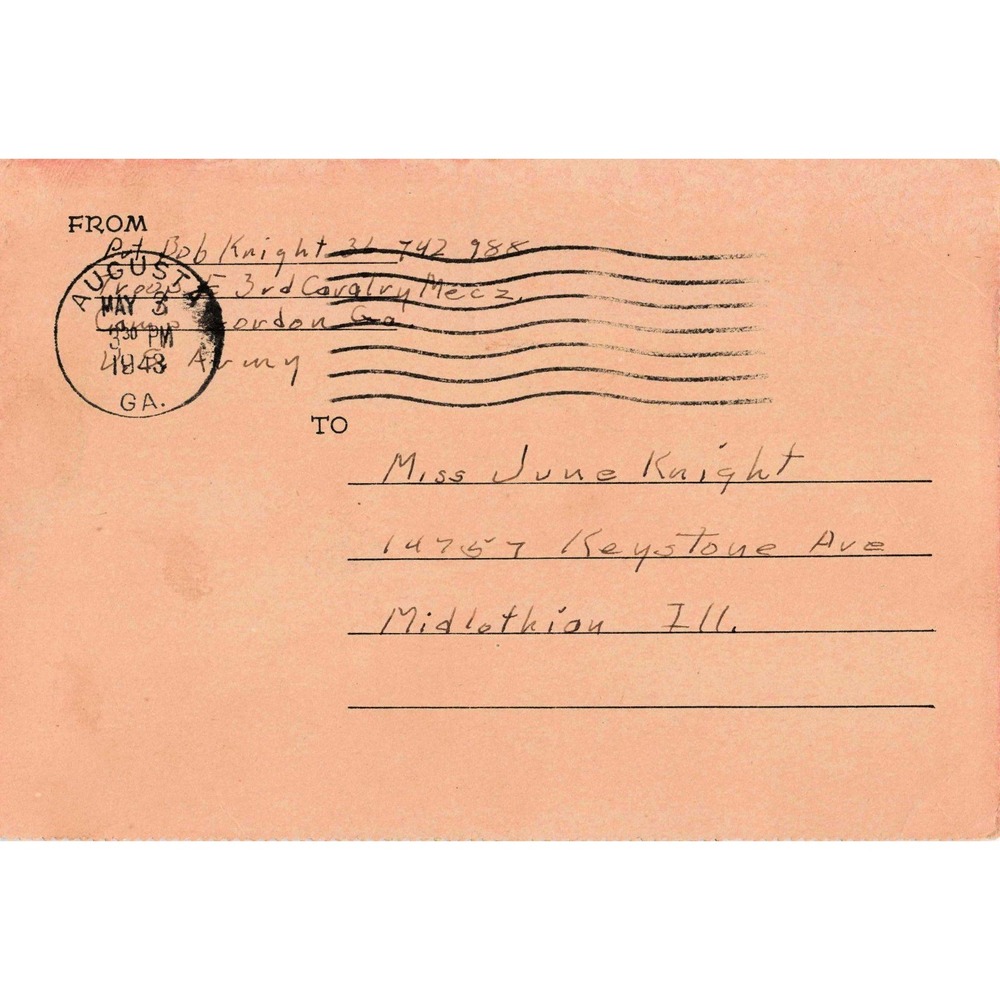 FROM
Pvt Bob Knight 36 742 988
Troop E 3rd Cavalry Mecz.
Camp Gordon Ga.
U.S. Army
AUGUSTA
MAY 3
3 30 PM
1943
GA.
TO
Miss June Knight
14757 Keystone Ave
Midlothian Ill.